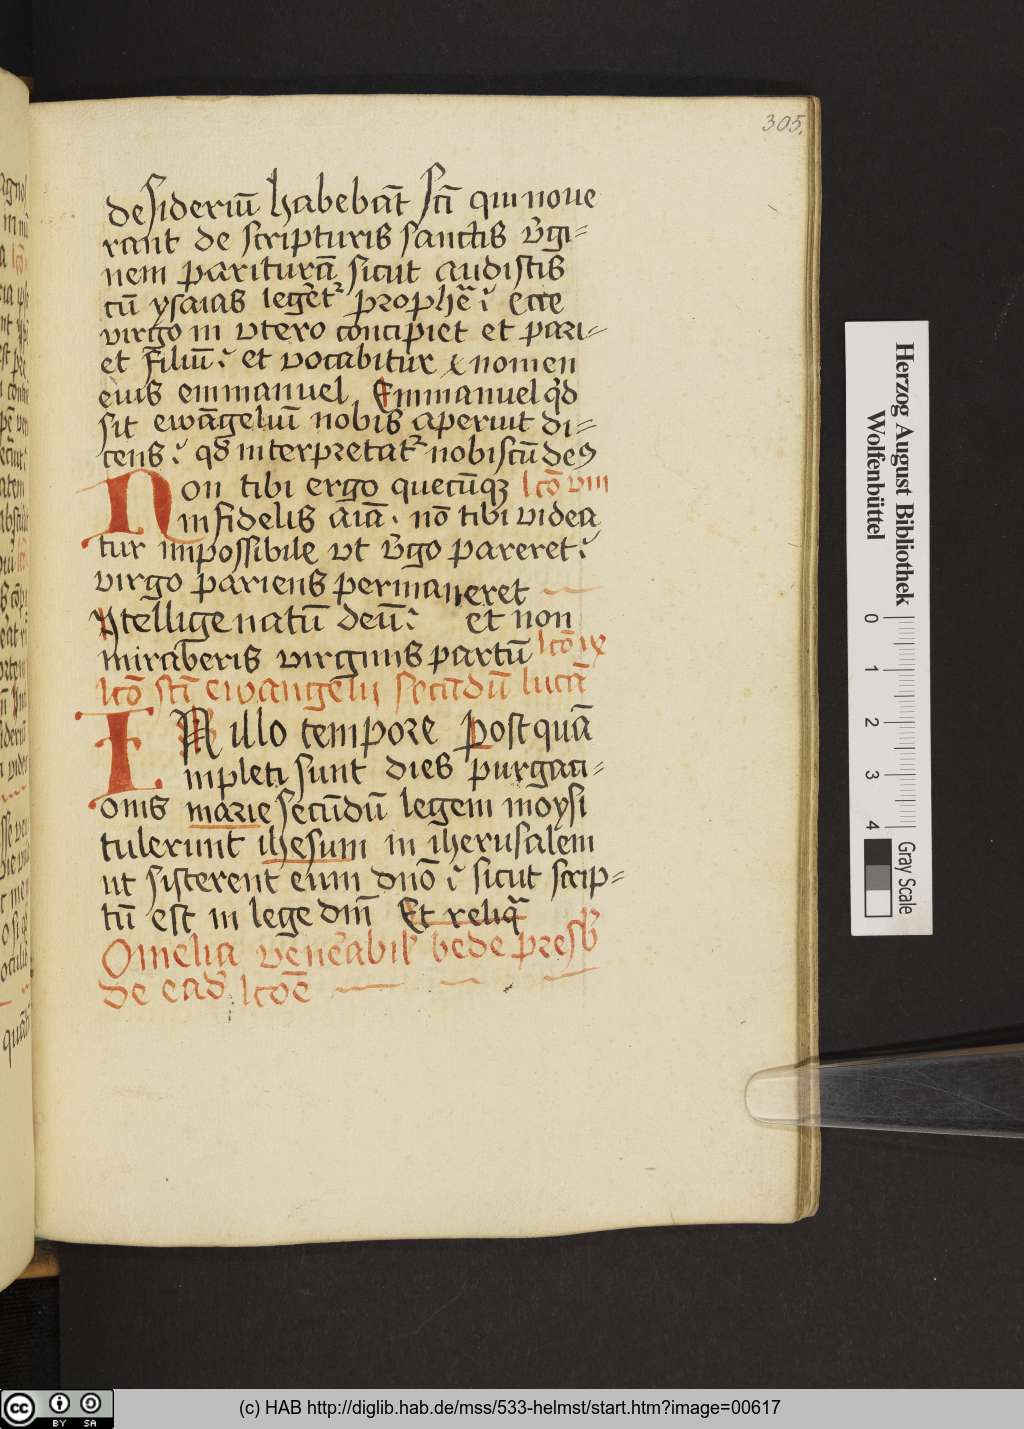 305.
desideriū habebāt Scī qui noue
rant de scripturis sanctis v̄gi=
nem pariturā sicut audistis
cū ysaias legeret prophē : ecce
virgo in vtero concipiet et pari=
et filiū : et vocabitur nomen
eius emmanuel Emmanuel qd
sit ewāgeliū nobis aperuit di=
cens : qd interpretat nobiscū deꝰ
Non tibi ergo quecūqꝫ lcō viii
infidelis aīa . nō tibi videa
tur impossibile vt v̄go pareret :
virgo pariens permaneret
Yntellige natū deū : et non
miraberis virginis partū lcō ix
lcō scī ewangelii secūdū lucā
IN illo tempore Postquā
inpleti sunt dies purgaci=
onis marie secūdū legem moysi
tulerunt ihesum in iherusalem
ut sisterent eum dnō : sicut scrip=
tū est in lege dnī Et reliqa
Omelia venēabil bede presb
de ead lcōe
Herzog August Bibliothek
Wolfenbüttel
0 1 2 3 4
Gray Scale
BY SA
(c) HAB http://diglib.hab.de/mss/533-helmst/start.htm?image=00617